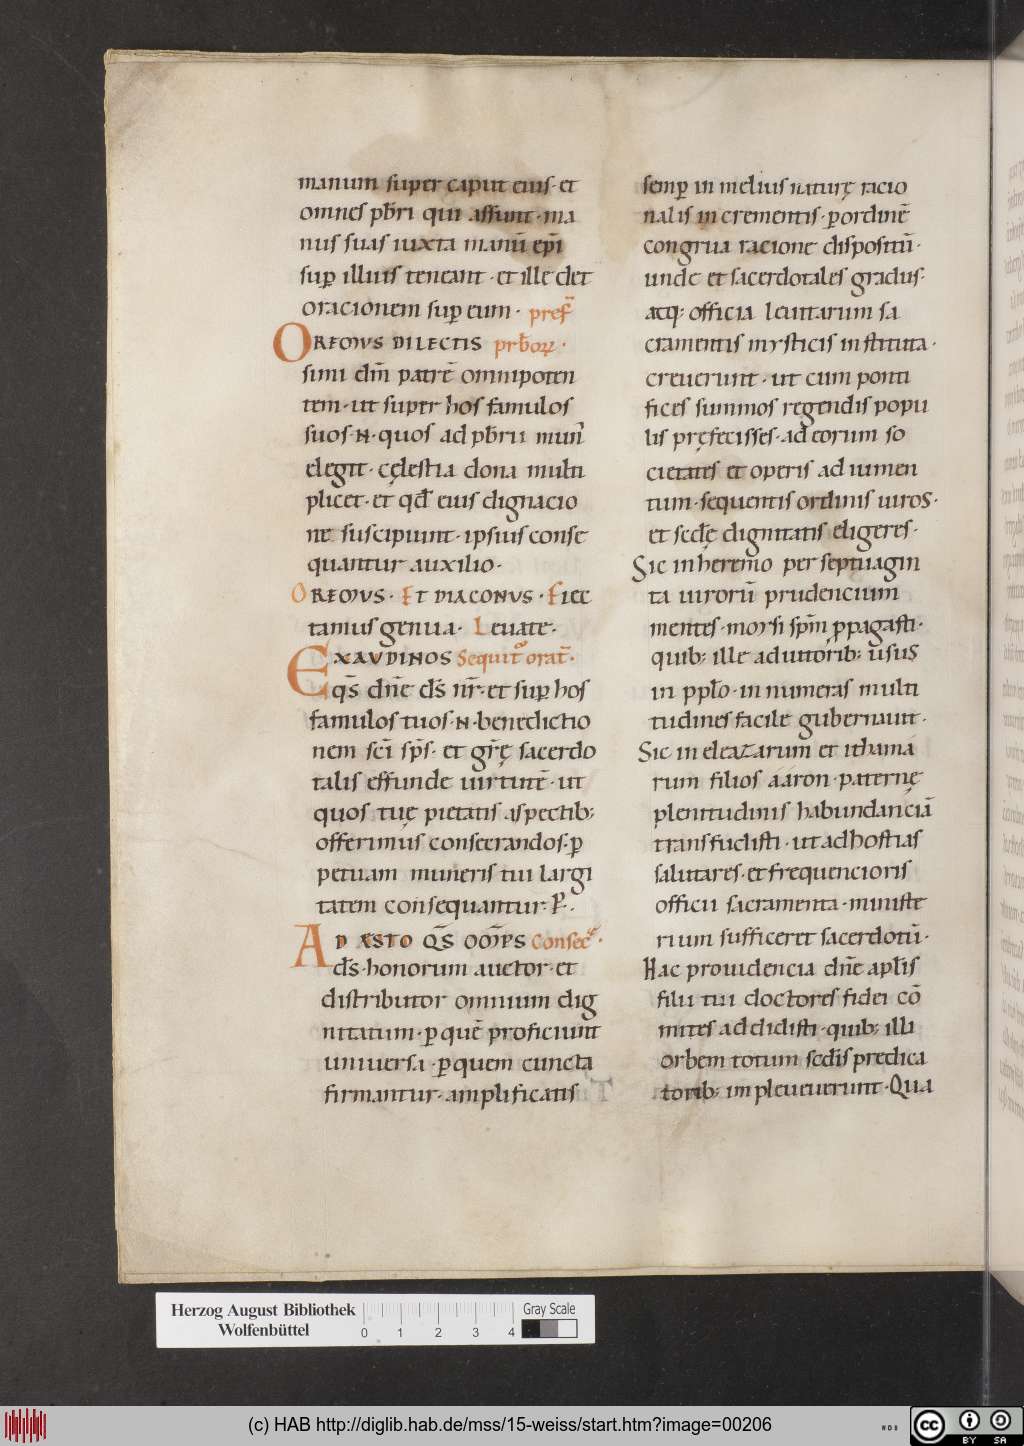 manum super caput eius· et
omnes pb̄ri qui assunt· ma
nus suas iuxta manū ep̄i
sup̱ illius teneant· et ille det
oracionem sup̱ eum· pref̄
OREMVS DILECTIS prb̄oꝝ·
simi dm̄ patrē omnipoten
tem· ut super hos famulos
suos·N·quos ad pb̄rii mun̄
elegit· cęlestia dona multi
plicet· et qd̄ eius dignacio
ne suscipiunt· ipsius conse
quantur auxilio·
OREMVS· ET DIACONVS· Flec
tamus genua· Leuate·
EXAVDINOS Sequit᷑ orat̄·
qs̄ dn̄e ds̄ nr̄· et sup̱ hos
famulos tuos·N·benedictio
nem sc̄i sp̄s· et gr̄ę sacerdo
talis effunde uirtutē· ut
quos tuę pietatis aspectib;
offerimus consecrandos· ꝑ
petuam muneris tui largi
tatem consequantur· P̱·
ADESTO QS̄ OM̄PS Consec̄·
ds̄· honorum auctor· et
distributor omnium dig
nitatum· ꝑ quē proficiunt
uniuersa· ꝑ quem cuncta
firmantur· amplificatis
semp̱ in melius naturę racio
nalis in crementis· ꝑ ordinē
congrua racione dispositū·
unde et sacerdotales gradus·
atq; officia leuitarum sa
cramentis mysticis instituta·
creuerunt· ut cum ponti
fices summos regendis popu
lis pręfecisses· ad eorum so
cietatis et operis ad iumen
tum· sequentis ordinis uiros·
et secd̄ę dignitatis eligeres·
Sic in heremo per septuagin
ta uirorū prudencium
mentes· moysi sp̄m ꝓpagasti·
quib; ille adiutorib; usus
in ppl̄o· in numeras multi
tudines facile gubernauit·
Sic in eleazarum et ithama
rum filios ááron· paternę
plenitudinis habundanciā
transfudisti· ut ad hostias
salutares· et frequencioris
officii sacramenta· ministe
rium sufficeret sacerdotū·
Hac prouidencia dn̄e apl̄is
filii tui doctores fidei cō
mites addidisti· quib; illi
orbem totum secd̄is predica
torib; im pleueuerunt· Qua
Herzog August Bibliothek
Wolfenbüttel
0 1 2 3 4
Gray Scale
(c) HAB http://diglib.hab.de/mss/15-weiss/start.htm?image=00206
WDB
cc BY SA